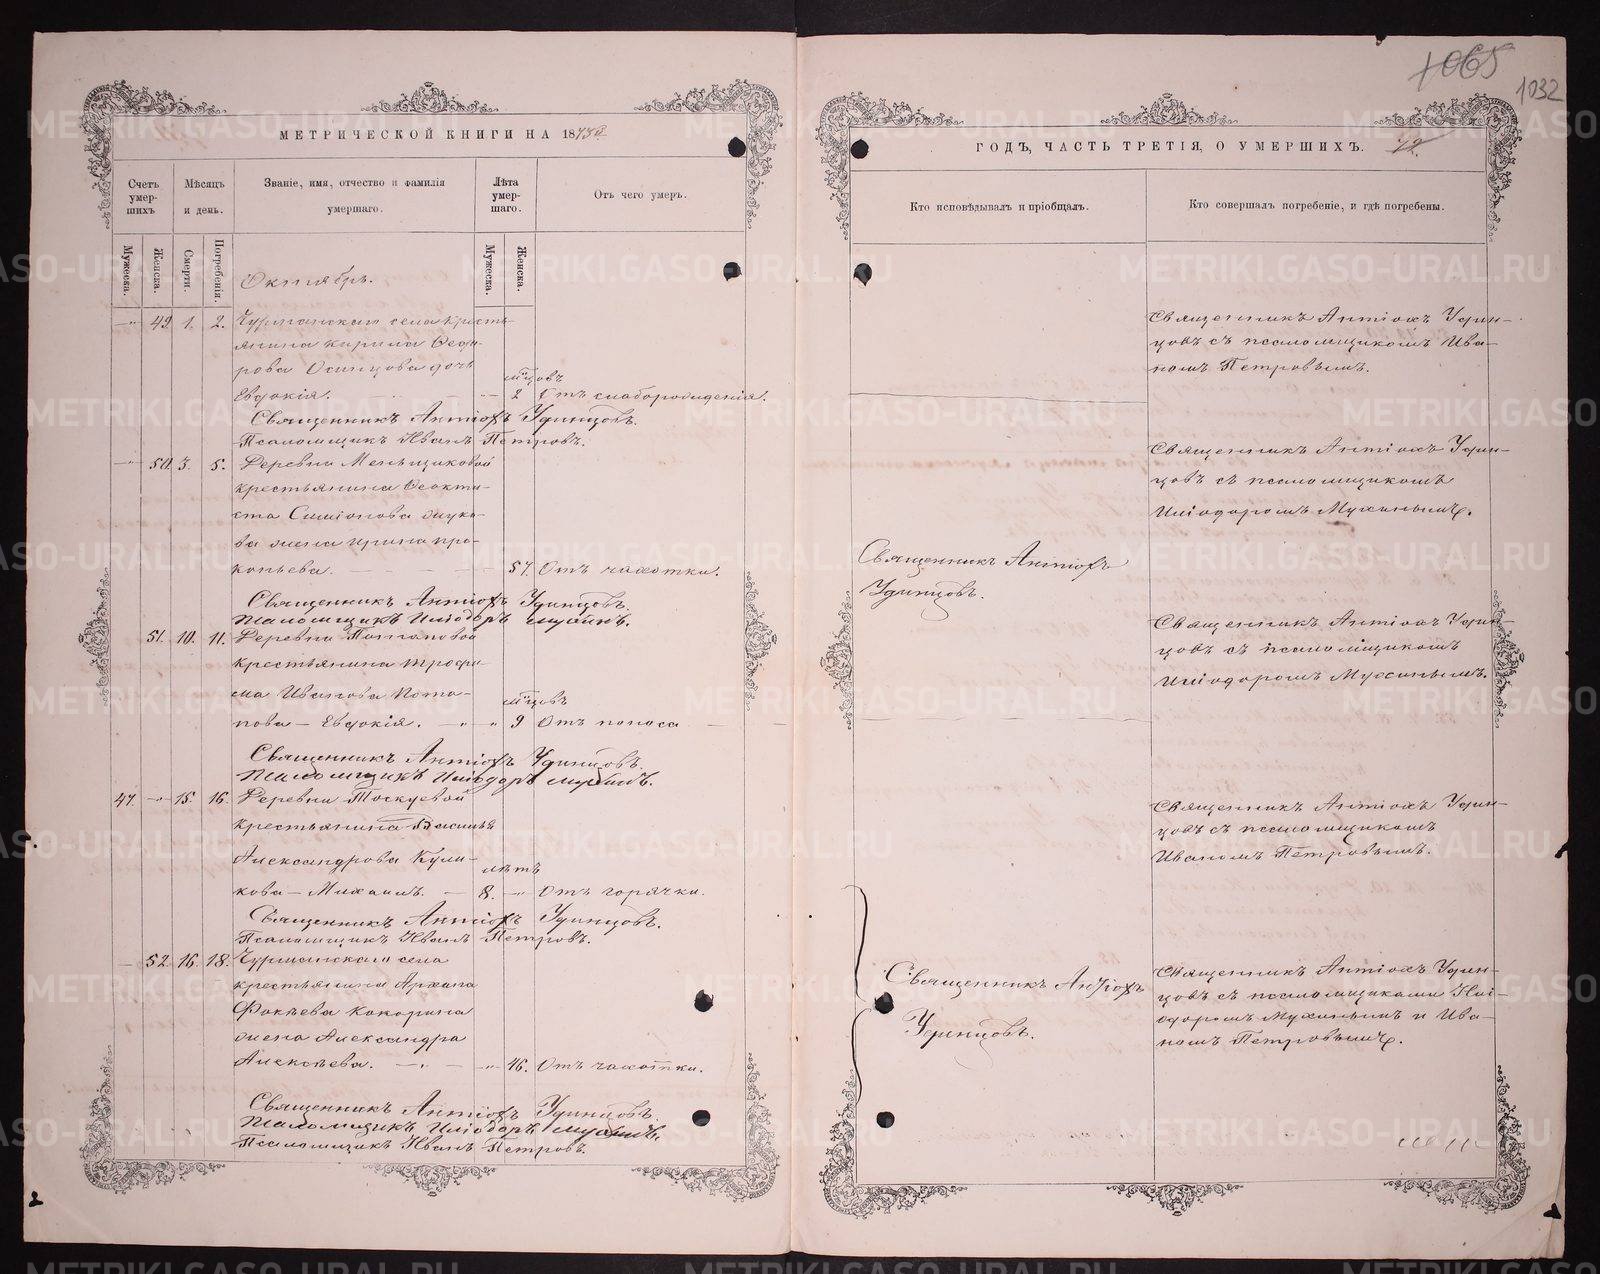 1065
1032
МЕТРИЧЕСКОЙ КНИГИ НА 1873й
Счетъ умер-шихъ
Мѣсяцъ и день.
Званіе, имя, отчество и фамилія умершаго.
Лѣта умер-шаго.
Отъ чего умеръ.
Мужеска.
Женска.
Смерти.
Погребенія.
Мужеска.
Женска.
Октябрь.
49 1. 2. села кресть-
янина Кирила Ѳедо-
рова Осинцова дочь
мцовъ
Евдокія. 2 Отъ слаборожденія.
Священникъ Антіохъ Удинцовъ.
Псаломщикъ Иванъ Петровъ.
50. 3. 5. Деревни Меньщиковой
крестьянина Ѳеокти-
ста Симіонова
ва жена Ирина Про-
копьева. 57. Отъ чахотки.
Священникъ Антіохъ Удинцовъ.
Псаломщикъ Иліодоръ Мухинъ.
51. 10. 11. Деревни Потаповой
крестьянина Трофи-
ма Иванова Пота-
мцовъ
пова — Евдокія. 9 Отъ поноса
Священникъ Антіохъ Удинцовъ.
Псаломщикъ Иліодоръ Мухинъ.
47. 15. 16. Деревни
крестьянина Василья
Александрова Кули-
лѣтъ
кова — Михаилъ. 8. Отъ горячки.
Священникъ Антіохъ Удинцовъ.
Псаломщикъ Иванъ Петровъ.
52. 16. 18. села
крестьянина Архипа
Фокѣева Кокорина
жена Александра
Алексѣева. 46. Отъ чахотки.
Священникъ Антіохъ Удинцовъ.
Псаломщикъ Иліодоръ Мухинъ.
Псаломщикъ Иванъ Петровъ.
ГОДЪ, ЧАСТЬ ТРЕТІЯ, О УМЕРШИХЪ.
Кто исповѣдывалъ и пріобщалъ.
Кто совершалъ погребеніе, и гдѣ погребены.
Священникъ Антіохъ Удин-
цовъ съ псаломщикомъ Ива-
номъ Петровымъ.
Священникъ Антіохъ Удин-
цовъ съ псаломщикомъ
Иліодоромъ Мухинымъ.
Священникъ Антіохъ
Удинцовъ.
Священникъ Антіохъ Удин-
цовъ съ псаломщикомъ
Иліодоромъ Мухинымъ.
Священникъ Антіохъ Удин-
цовъ съ псаломщикомъ
Иваномъ Петровымъ.
Священникъ Антіохъ
Удинцовъ.
Священникъ Антіохъ Удин-
цовъ съ псаломщиками Илі-
одоромъ Мухинымъ и Ива-
номъ Петровымъ.
METRIKI.GASO-URAL.RU